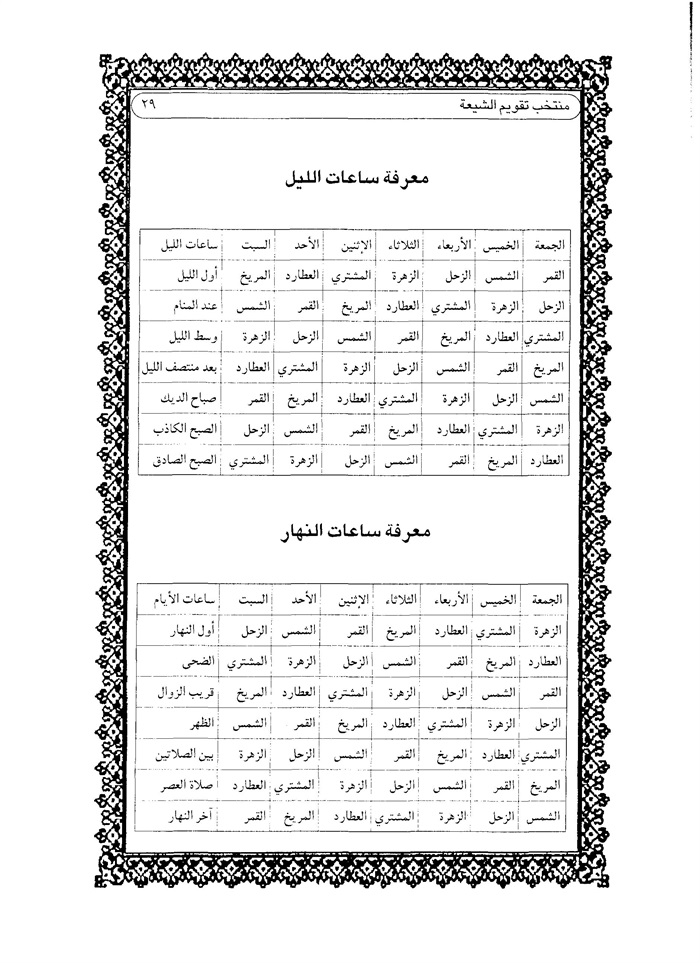 منتخب تقويم الشيعة ٢٩
معرفة ساعات الليل
الجمعة الخميس الأربعاء الثلاثاء الإثنين الأحد السبت ساعات الليل
القمر الشمس الزحل الزهرة المشتري العطارد المريخ أول الليل
الزحل الزهرة المشتري العطارد المريخ القمر الشمس عند المنام
المشتري العطارد المريخ القمر الشمس الزحل الزهرة وسط الليل
المريخ القمر الشمس الزحل الزهرة المشتري العطارد بعد منتصف الليل
الشمس الزحل الزهرة المشتري العطارد المريخ القمر صباح الديك
الزهرة المشتري العطارد المريخ القمر الشمس الزحل الصبح الكاذب
العطارد المريخ القمر الشمس الزحل الزهرة المشتري الصبح الصادق
معرفة ساعات النهار
الجمعة الخميس الأربعاء الثلاثاء الإثنين الأحد السبت ساعات الأيام
الزهرة المشتري العطارد المريخ القمر الشمس الزحل أول النهار
العطارد المريخ القمر الشمس الزحل الزهرة المشتري الضحى
القمر الشمس الزحل الزهرة المشتري العطارد المريخ قريب الزوال
الزحل الزهرة المشتري العطارد المريخ القمر الشمس الظهر
المشتري العطارد المريخ القمر الشمس الزحل الزهرة بين الصلاتين
المريخ القمر الشمس الزحل الزهرة المشتري العطارد صلاة العصر
الشمس الزحل الزهرة المشتري العطارد المريخ القمر آخر النهار